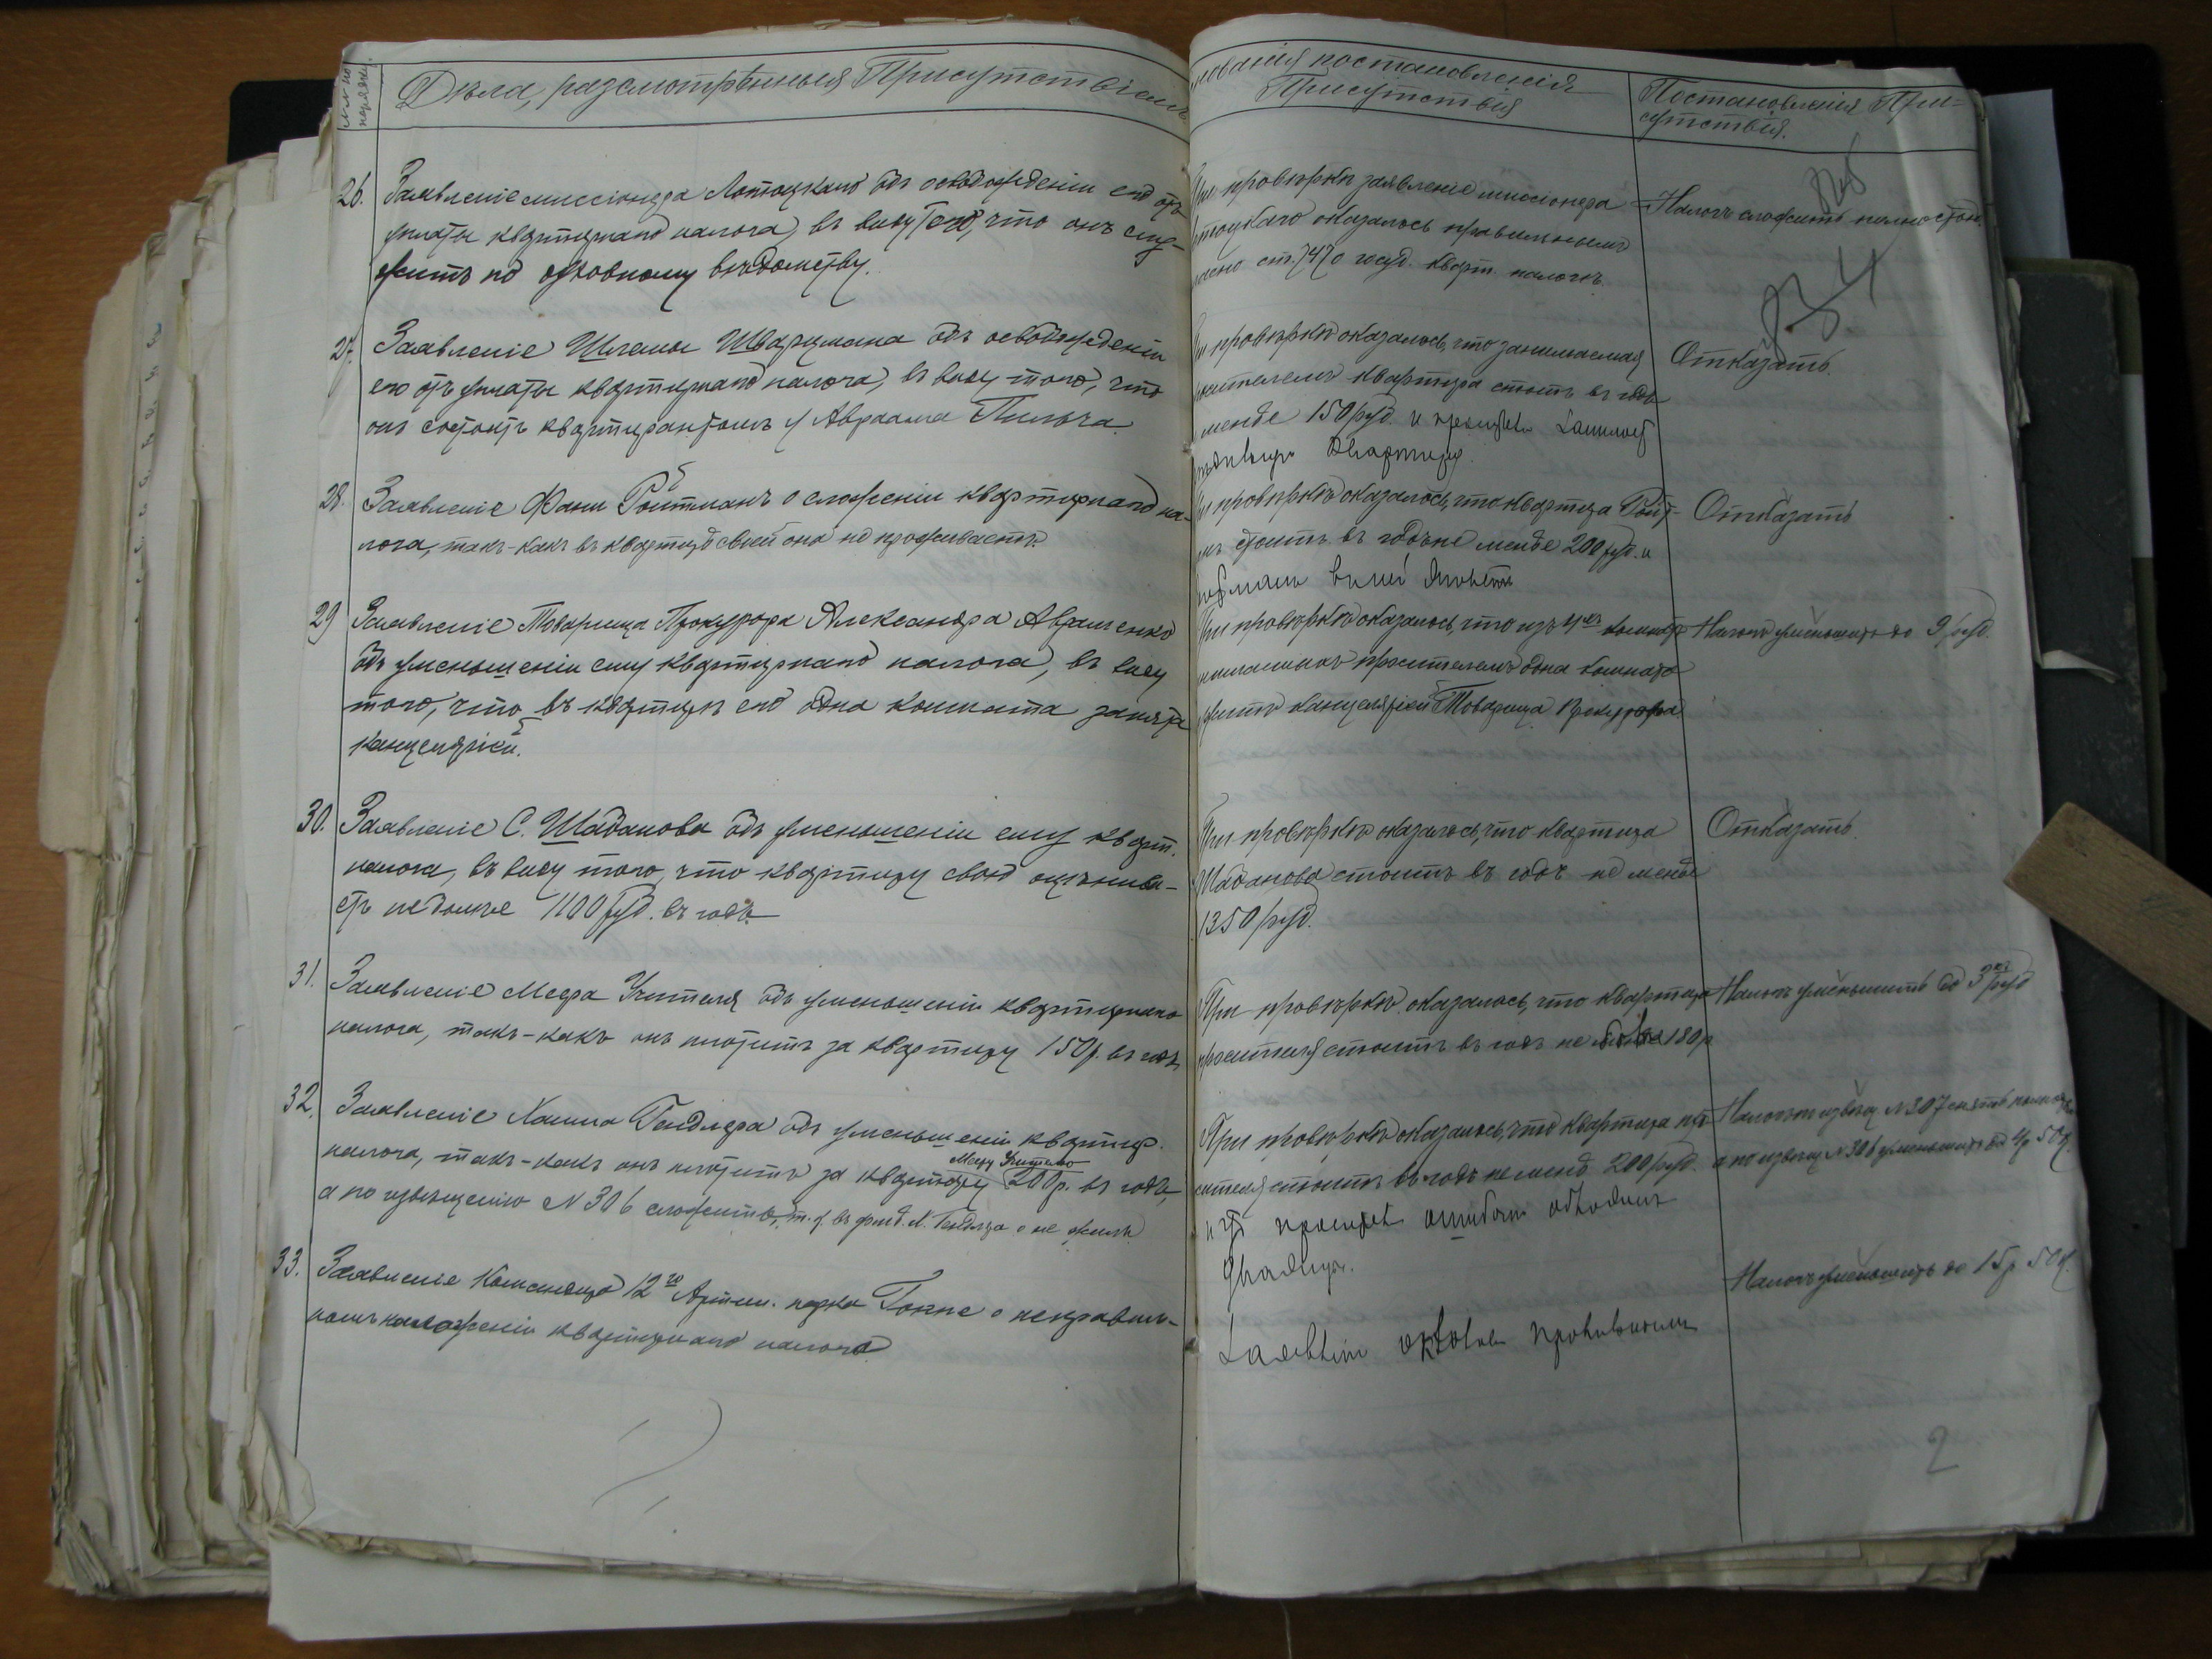 №№ по порядку.
Дѣла, разсмотрѣнныя Присутствіемъ
26. Заявленіе миссіонера Лотоцкаго объ освобожденіи его отъ
уплаты квартирнаго налога, въ виду того, что онъ слу-
житъ по духовному вѣдомству.
27. Заявленіе Шлемы Шварцмана объ освобожденіи
его отъ уплаты квартирнаго налога, въ виду того, что
онъ состоитъ квартирантомъ у Авраама Пильча.
28. Заявленіе Фани Ройтманъ о сложеніи квартирнаго на-
лога, такъ-какъ въ квартирѣ своей она не проживаетъ.
29 Заявленіе Товарища Прокурора Александра Авраменко
объ уменьшеніи ему квартирнаго налога, въ виду
того, что въ квартирѣ его одна комната занята
канцеляріей.
30. Заявленіе С. Шабанова объ уменьшеніи ему кварт.
налога, въ виду того, что квартиру свою оцѣнива-
етъ не болѣе 1100 руб. въ годъ.
31. Заявленіе Меера Учителя объ уменьшеніи квартирнаго
налога, такъ-какъ онъ платитъ за квартиру 150 р. въ годъ
32. Заявленіе Хаима Гендлера объ уменьшеніи квартир.
налога, такъ-какъ онъ платитъ за квартиру Меру Учителю 200 р. въ годъ,
а по извѣщенію N 306 сложить, т. к. въ д. Гендлера не жилъ
33. Заявленіе Командира 12го Артил. парка Гоппе о неправиль-
номъ наложеніи квартирнаго налога
нованія постановленія
Присутствія
При провѣркѣ заявленіе миссіонера
отоцкаго оказалось правильнымъ
ласно ст. 4 о госуд. кварт. налогѣ.
и провѣркѣ оказалось, что занимаемая
осителемъ квартира стоитъ въ годъ
менѣе 150 руб. и
квартиру.
и провѣркѣ оказалось, что квартира Ройт-
нъ стоитъ въ годъ не менѣе 200 руб. и
въ ней
При провѣркѣ оказалось, что изъ 4хъ комнатъ
нимаемыхъ просителемъ одна комната
нята канцеляріей Товарища Прокурора
При провѣркѣ оказалось, что квартира
Шабанова стоитъ въ годъ не менѣе
1350 руб.
При провѣркѣ оказалось, что квартира
просителя стоитъ въ годъ не болѣе 180 р
При провѣркѣ оказалось, что квартира про-
сителя стоитъ въ годъ не менѣ 200 руб.
Постановленія При-
сутствія.
Налогъ сложить полностью.
34
Отказать.
Отказать
Налогъ уменьшить до 9 руб.
Отказать.
Налогъ уменьшить до 3хъ руб
Налогъ по извѣщ. N 307 снять полностью
а по извѣщ N 306 уменьшить до 4 р 50 к.
Налогъ уменьшить до 15 р 50 к.
2